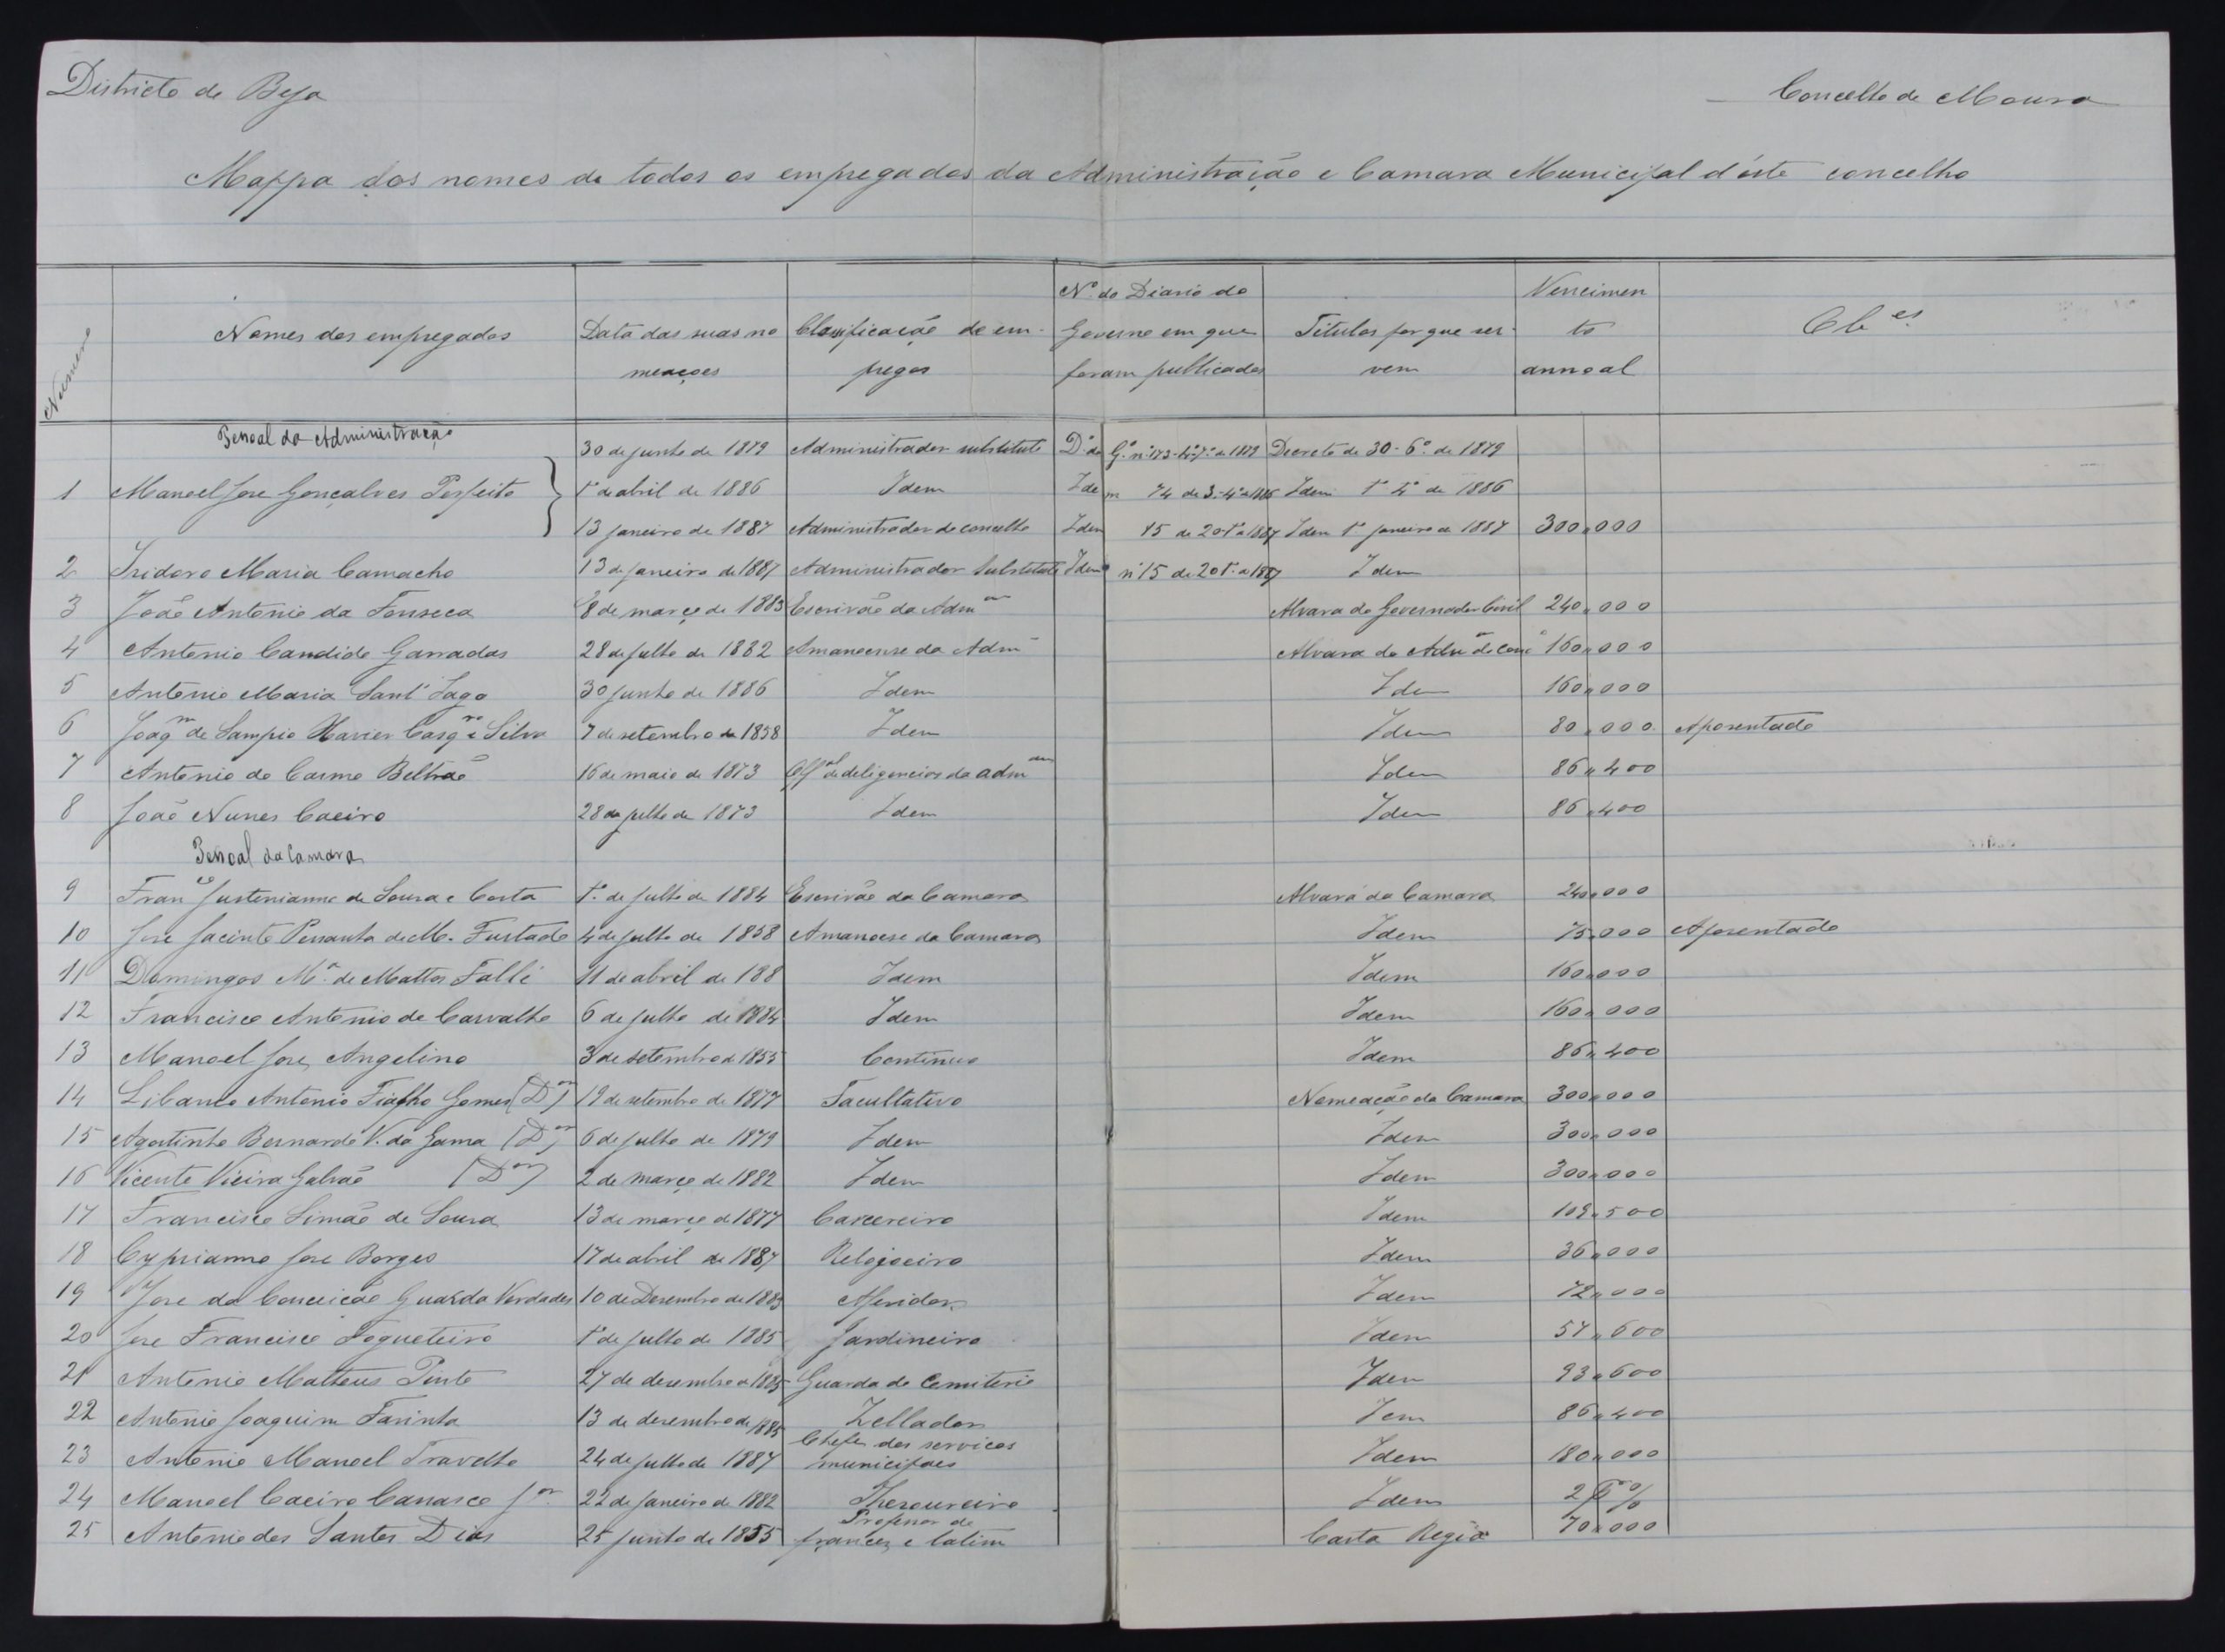 Districto de Beja
Concelho de Moura
Mappa dos nomes de todos os empregados da Administração e Camara Municipal d'este concelho
Numero | Nomes dos empregados | Data das suas nomeações | Classificação de empregos | Nº do Diario do Governo em que foram publicados | Titulos por que servem | Vencimento annoal | Obes
Pessoal da Administração
30 de junho de 1879 Administrador substituto Dº do Gº nº 173 1879 Decreto de 30-6º de 1879
1 Manoel Jose Gonçalves Perfeito 1º de abril de 1886 Idem Idem 74 de 3-4º de 1886 Idem 1º 4º de 1886
13 janeiro de 1887 Administrador do concelho Idem 15 de 20-1º de 1887 Idem 1º janeiro de 1887 300,000
2 Izidoro Maria Camacho 13 de janeiro de 1887 Administrador Substituto Idem nº 15 de 20 1º de 1887 Idem
3 João Antonio da Fonseca 8 de março de 1883 Escrivão da Admam Alvara do Governador Civil 240,000
4 Antonio Candido Garradas 28 de julho de 1882 Amanoense da Adm Alvara do Admor do conc 160,000
5 Antonio Maria Sant' Iago 30 junho de 1886 Idem Idem 160,000
6 Joaqm de Sampio Xavier Casqro e Silva 7 de setembro de 1858 Idem Idem 80,000 Aposentado
7 Antonio do Carmo Beltrão 16 de maio de 1873 Offal de deligencias da admam Idem 86,400
8 João Nunes Caeiro 28 de julho de 1873 Idem Idem 86,400
Pessoal da Camara
9 Franco Justenianno de Sousa e Costa 1º de julho de 1884 Escrivão da Camara Alvará da Camara 240,000
10 Jose Jacinto Pessanha de M. Furtado 4 de julho de 1858 Amanoese da Camara Idem 75,000 Aposentado
11 Domingos Mª de Mattos Falli 11 de abril de 188 Idem Idem 160,000
12 Francisco Antonio de Carvalho 6 de julho de 1884 Idem Idem 160,000
13 Manoel Jose Angelino 3 de setembro de 1855 Continuo Idem 86,400
14 Libanio Antonio Fialho Gomes (Dor) 19 de setembro de 1877 Facultativo Nomeação da Camara 300,000
15 Agostinho Bernardo V. da Gama (Dor) 6 de julho de 1879 Idem Idem 300,000
16 Vicente Vieira Galvão (Dor) 2 de março de 1882 Idem Idem 300,000
17 Francisco Simão de Sousa 13 de março de 1877 Carcereiro Idem 109,500
18 Cyprianno Jose Borges 17 de abril de 1887 Relojoeiro Idem 36,000
19 Jose da Conceicão Guarda Verdades 10 de Desembro de 1883 Aferidor Idem 72,000
20 Jose Francisco Fogueteiro 1º de julho de 1885 Jardineiro Idem 57,600
21 Antonio Matheus Pinto 27 de desembro de 1885 Guarda do Cemiterio Idem 93,600
22 Antonio Joaquim Farinha 13 de desembro de 1885 Zellador Iem 86,400
23 Antonio Manoel Travelho 24 de julho de 1887 Chefe dos serviços municipaes Idem 180,000
24 Manoel Caeiro Canasco Jor 22 de janeiro de 1882 Thezoureiro Idem 2 %
25 Antonio dos Santos Dias 25 junho de 1855 Professor de francez e latim Carta Regia 70,000